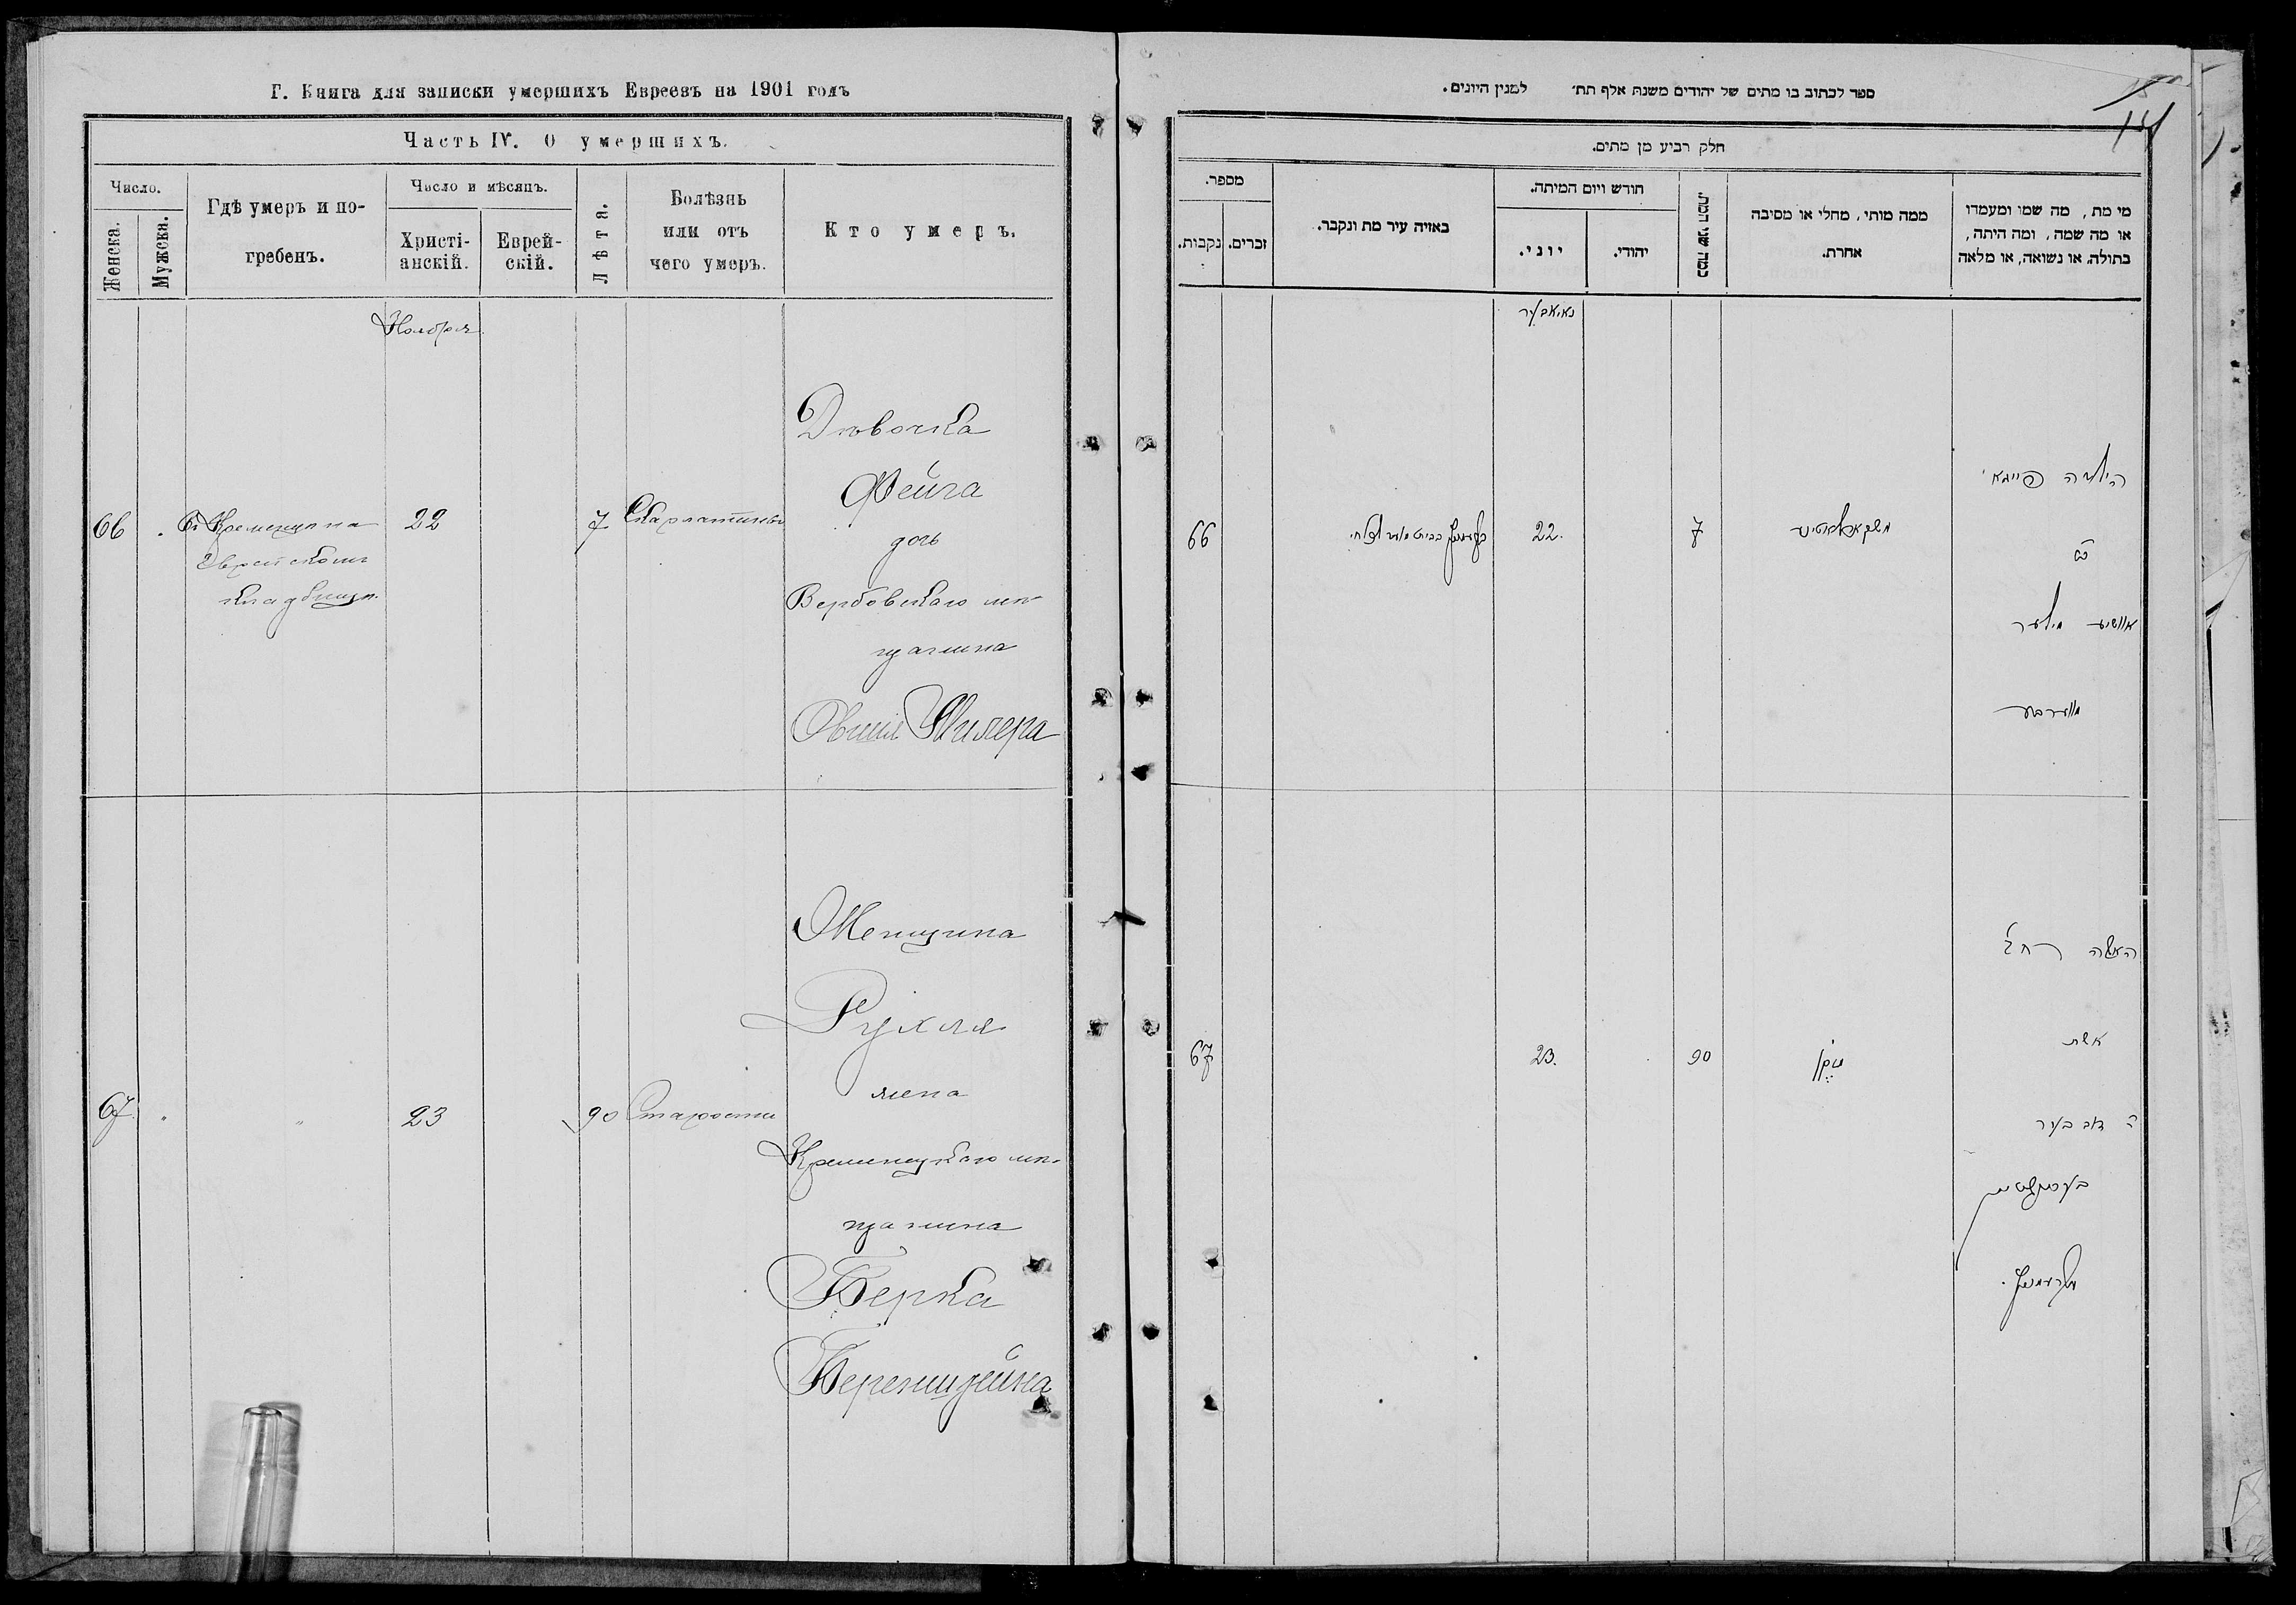 Г. Книга для записки умершихъ Евреевъ на 1901 годъ
Часть IV. О умершихъ.
Число.
Женска.
Мужска.
Гдѣ умеръ и по-
гребенъ.
Число и мѣсяцъ.
Христі-
анскій.
Еврей-
скій.
Лѣта.
Болѣзнь
или отъ
чего умеръ.
Кто умеръ.
Ноября
66
Въ Кременцѣ на
Еврейскомъ
кладбищѣ
22
7
Скарлатины
Дѣвочка
Фейга
дочь
Вербовскаго мѣ-
щанина
Овшія Милера
67
"
23
90
Старости
Женщина
Рухля
жена
Кременецкаго мѣ-
щанина
Берка
Беренштейна
ספר לכתוב בו מתים של יהודים משנת אלף תת׳ למנין היונים.
חלק רביע מן מתים.
מספר.
נקבות.
זכרים.
באיזה עיר מת ונקבר.
חודש ויום המיתה.
יוני.
יהודי.
כמה שני המת.
ממה מותי, מחלי או מסיבה
אחרת.
מי מת, מה שמו ומעמדו
או מה שמה, ומה היתה,
בתולה, או נשואה, או מלאה
נאיאבער
66
22.
7
הילדה פייגא
בת
אוושיע מילער
67
23.
90
זוקן
האשה רחל
אשת
ר דוב בער